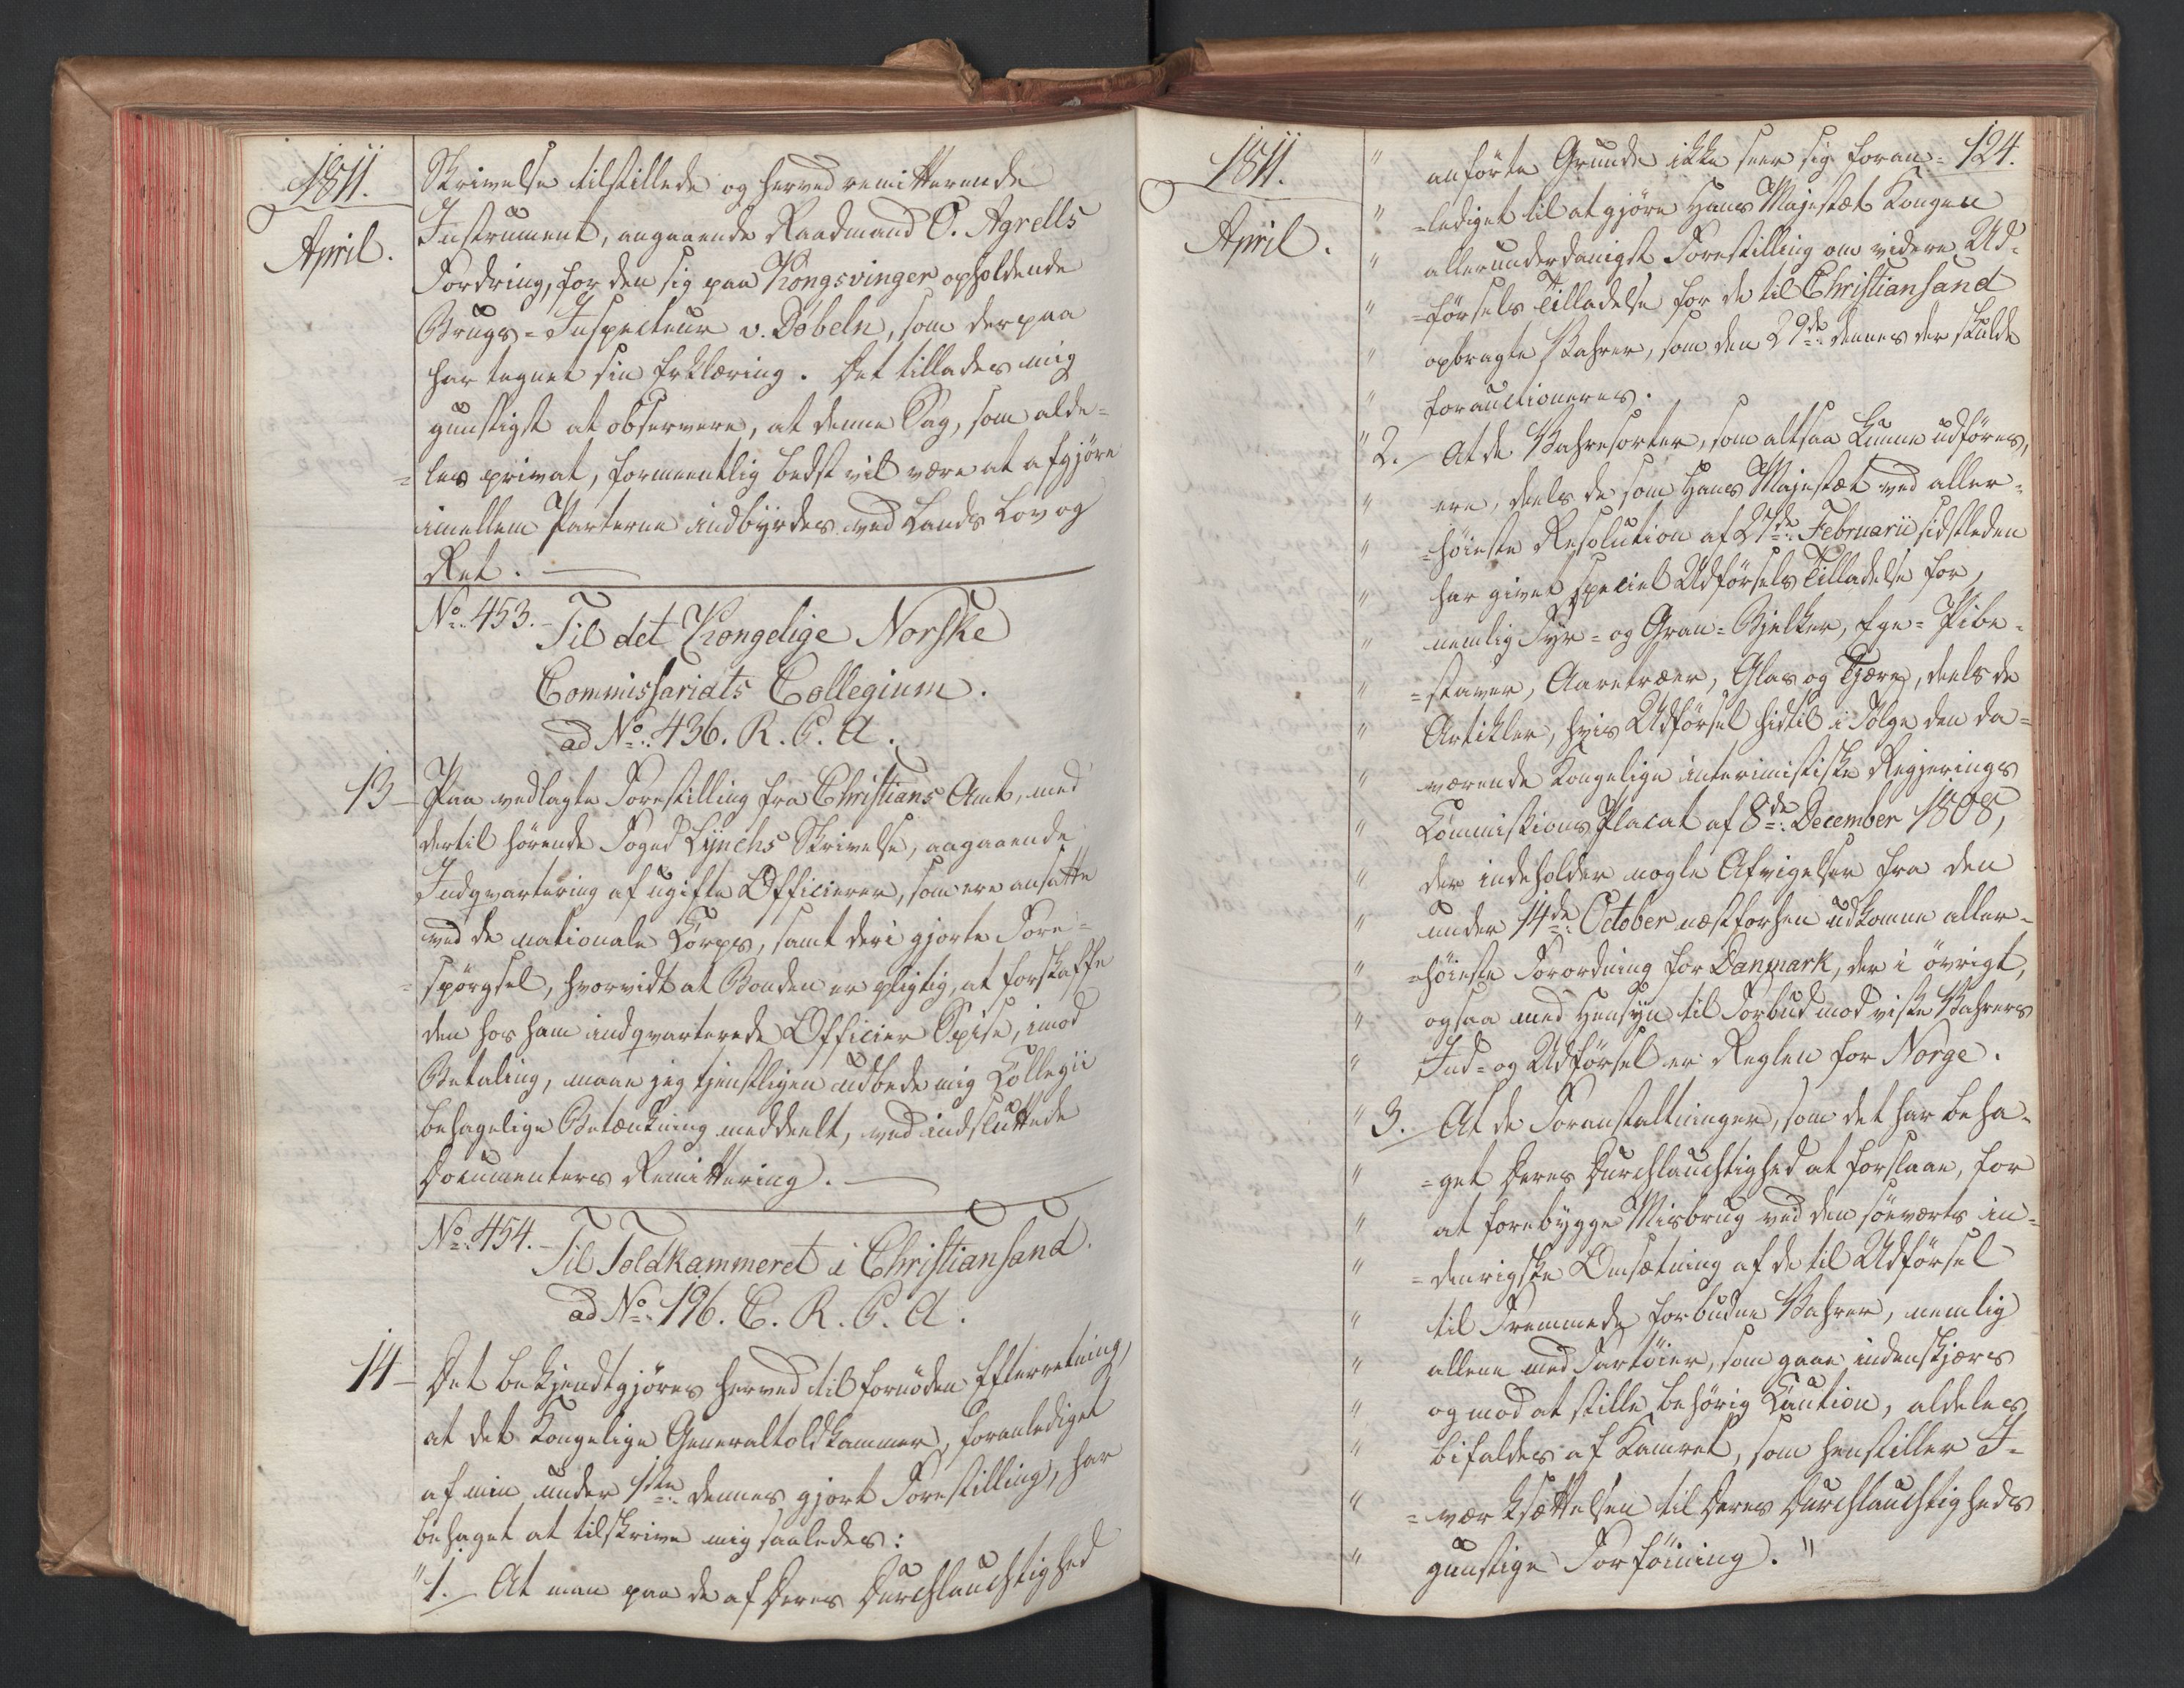 1811.
April.
Skrivelse tilstillede og herved remitterende
Instrument, angaaende Raadmand O. Agrells
Fordring, for den sig paa Kongsvinger opholdende
Brugs-Inspecteur v. Döbeln, som derpaa
har tegnet sin Erklæring. Det tillades mig
gunstigst at observere, at denne Sag, som alde-
=les privat, formeentlig bedst vil være at afgjöre
imellem Parterne indbyrdes ved Lands Lov og
Ret.
No. 453. Til det Kongelige Norske
Commissariats Collegium.
ad No. 436. R. C. A.
13 Paa vedlagte Forestilling fra Christians Amt, med
dertil hörende Foged Lynchs Skrivelse, angaaende
Indqvartering af ugifte Officierer, som ere ansatte
ved de nationale Corps, samt deri gjorte Fore-
=spörgsel, hvorvidt at Bonden er pligtig, at forskaffe
den hos ham indqvarterede Officier Spise, imod
Betaling, maae jeg tjenstligen udbede mig Collegii
behagelige Betænkning meddeelt, ved indsluttede
Documenters Remittering.
No. 454. Til Toldkammeret i Christiansand.
ad No. 196. C. R. C. A.
14 Det bekjendtgjöres herved til fornöden Efterretning,
at det Kongelige Generaltoldkammer, foranlediget
af min under 1ste dennes gjort Forestilling, har
behaget at tilskrive mig saaledes:
"1. At man paa de af Deres Durchlauchtighed
1811.
April.
124.
" anförte Grunde ikke seer sig foran-
" =lediget til at gjöre Hans Majestæt Kongen
" allerunderdanigst Forestilling om videre Ud-
" =försels Tilladelse for de til Christiansand
" opbragte Vahrer, som den 29de dennes der skulde
" forauctioneres.
" 2. At de Vahresorter, som altsaa kunne udföres,
" ere, deels de som Hans Majestæt ved aller-
" =höieste Resolution af 27de Februarii sidstleden
" har givet speciel Udförsels Tilladelse for,
" nemlig Fyr- og Gran-Bjelker, Ege-Pibe-
" =staver, Aaretræer, Glas og Tjære, deels de
" Artikler, hvis Udförsel hidtil i Fölge den da-
" værende Kongelige interimistiske Regjerings
" Commissions Placat af 8de December 1808,
" der indeholder nogle Afvigelser fra den
" under 14de October næstforhen udkomne aller-
" =höieste Forordning for Danmark, der i övrigt,
" ogsaa med Hensyn til Forbud mod visse Vahrers
" Ind- og Udförsel er Reglen for Norge.
" 3. At de Foranstaltninger, som det har beha-
" =get Deres Durchlauchtighed at forslaae, for
" at forebygge Misbrug ved den söeværts in-
" =denrigske Omsætning af de til Udförsel
" til Fremmede forbudne Vahrer, nemlig
" allene med Fartöier, som gaae indenskjærs
" og mod at stille behörig Caution, aldeles
" bifaldes af Kamret, som henstiller I-
" =værksættelsen til Deres Durchlauchtigheds
" gunstige Forföining."